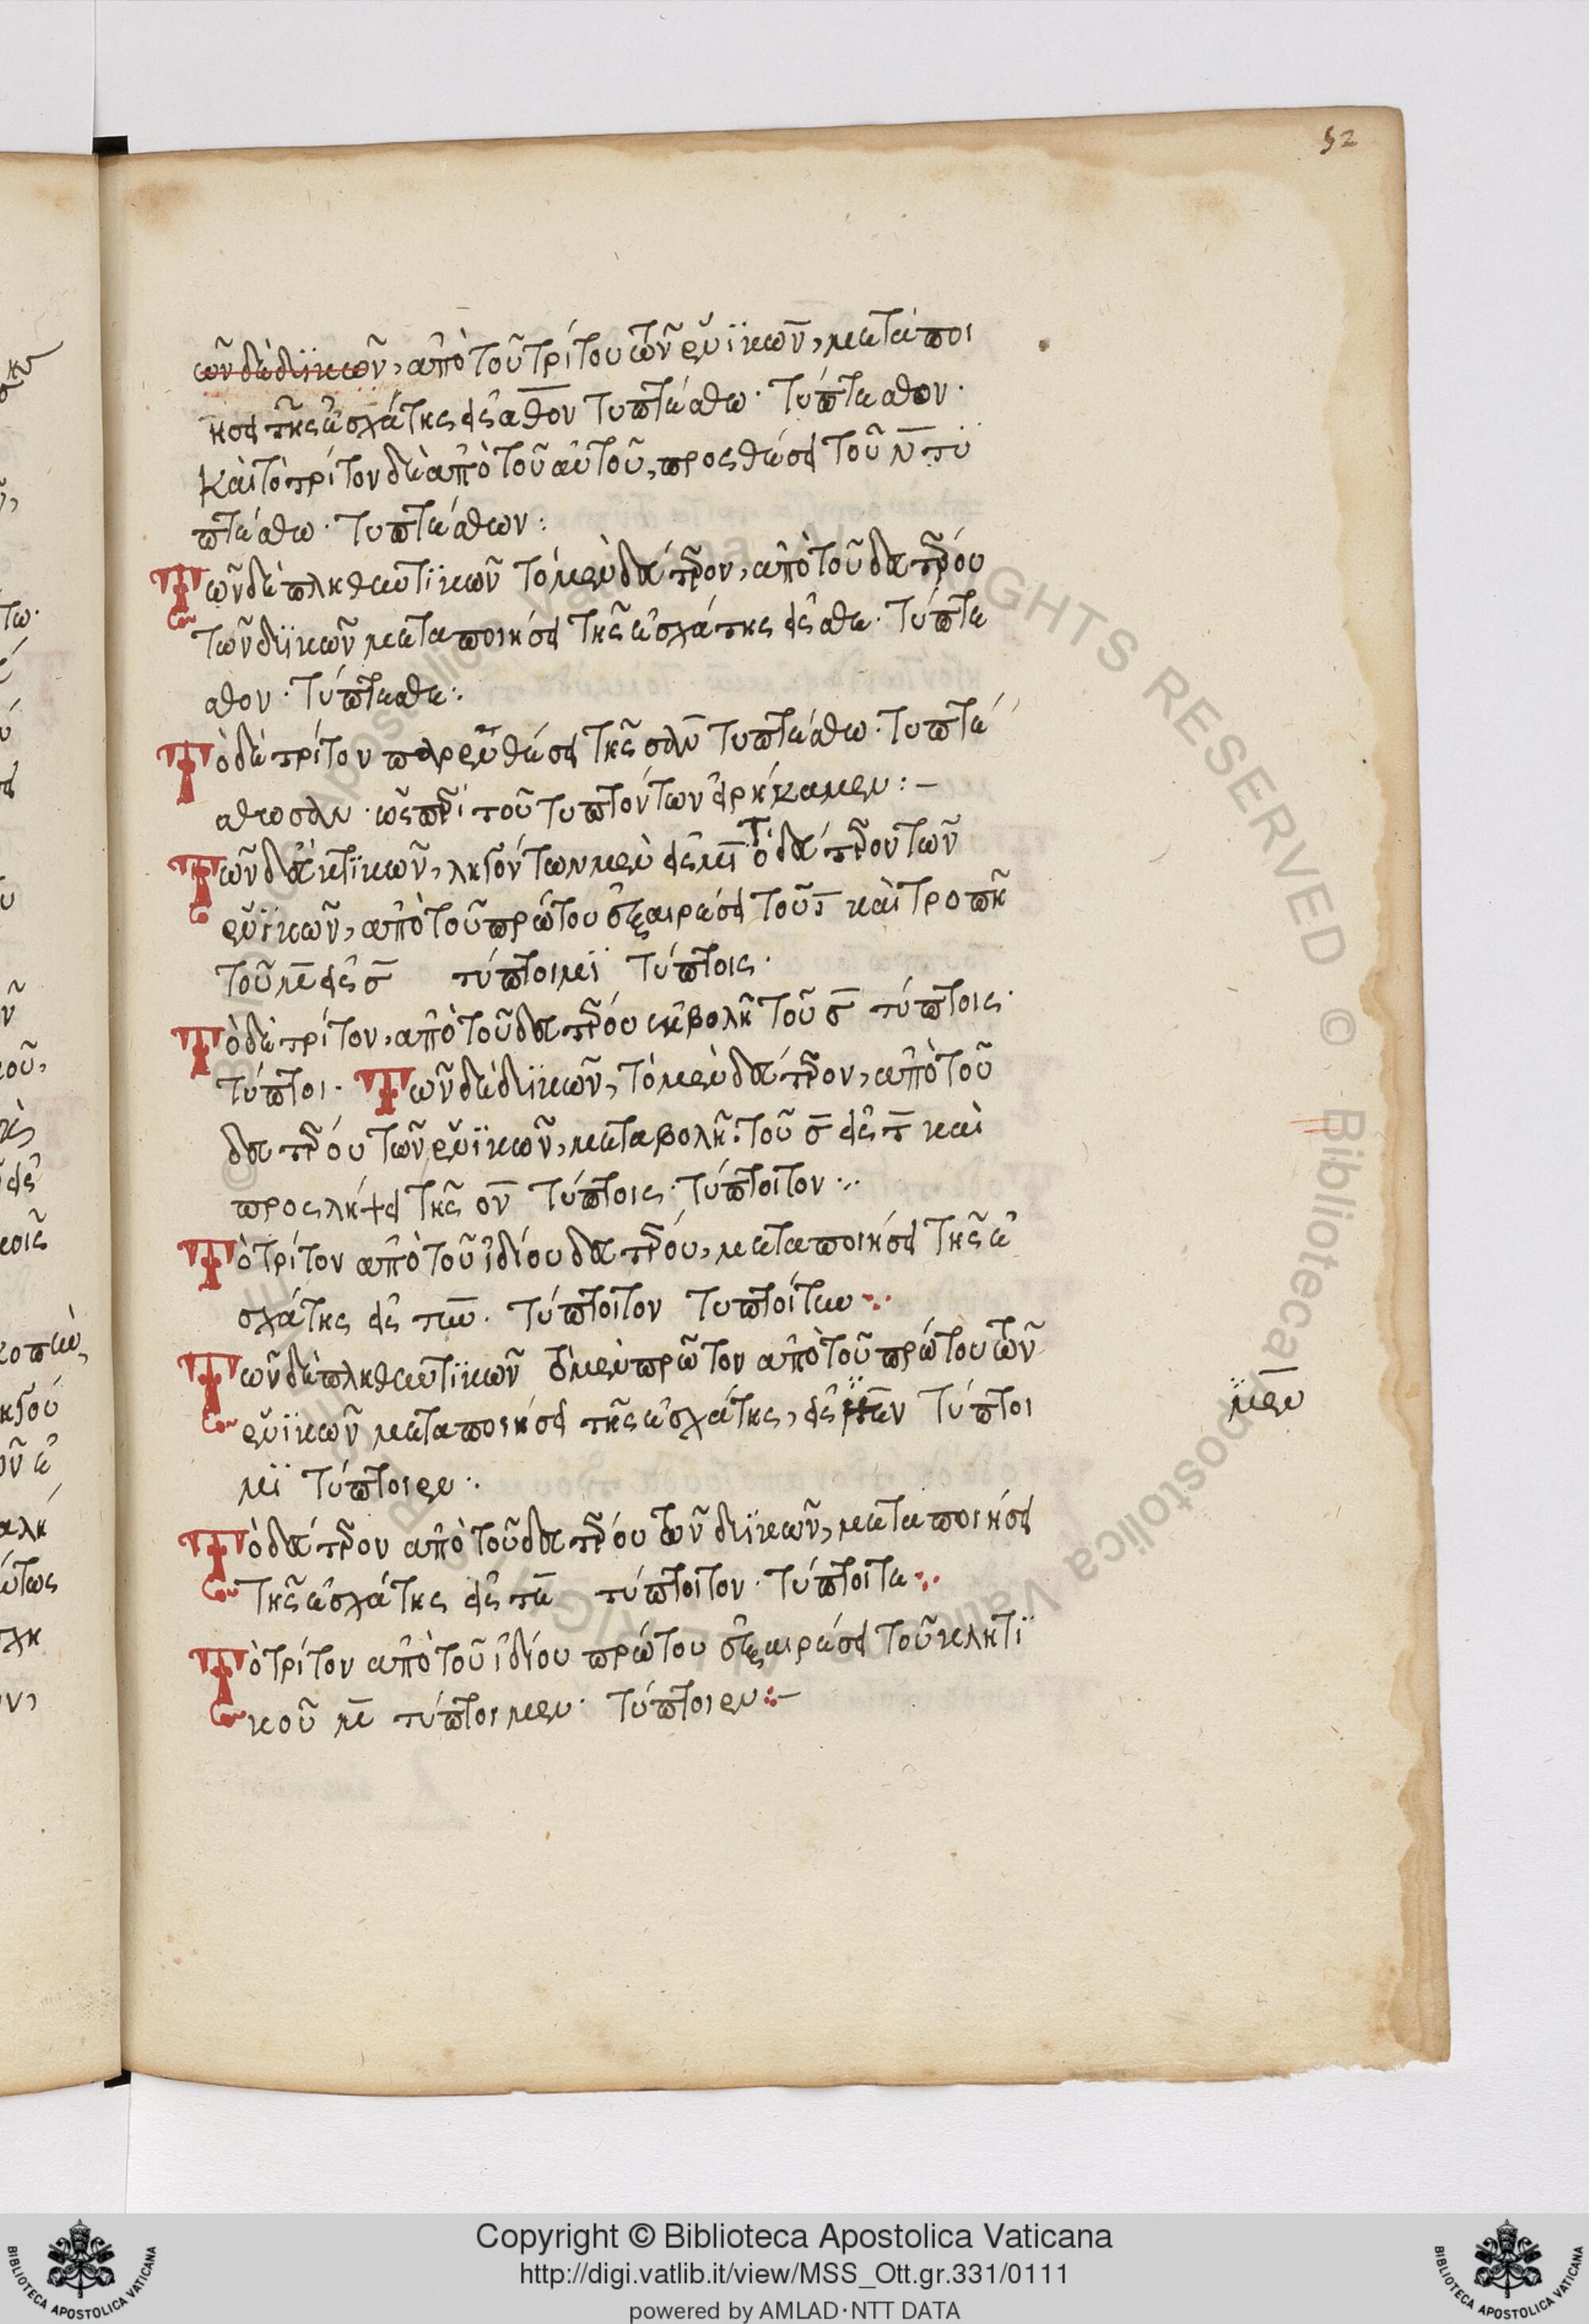 52
ῶν δὲ δϊκῶν, ἀπὸ τοῦ τρίτου τῶν ἑνϊκῶν, μεταποι
ήσει τῆς ἐσχάτης εἰς σθον τυπτέσθω· τύπτεσθον·
Καὶ τὸ τρίτον δὲ ἀπὸ τοῦ αὐτοῦ, προςθέσει τοῦ ν τυ
πτέσθω· τυπτέσθων:
Τῶν δὲ πληθυντϊκῶν τὸ μὲν δεύτερον, ἀπὸ τοῦ δευτέρου
τῶν δϊκῶν μεταποιήσει τῆς ἐσχάτης εἰς σθε· τύπτε
σθον· τύπτεσθε:.
Τὸ δὲ τρίτον παρενθέσει τῆς σαν τυπτέσθω· τυπτέ
σθωσαν· ὡς περὶ τοῦ τυπτόντων εἰρήκαμεν:–
Τῶν δὲ εὐκτϊκῶν, ληγόντων μὲν εἰς μι τὸ δεύτερον τῶν
ἑνϊκῶν, ἀπὸ τοῦ πρώτου ἐξαιρέσει τοῦ ι καὶ τροπῆ
τοῦ μ εἰς σ τύπτοιμϊ τύπτοις·
Τὸ δὲ τρίτον, ἀπὸ τοῦ δευτέρου ἐκβολῆ τοῦ σ τύπτοις·
τύπτοι· Τῶν δὲ δϋϊκῶν, τὸ μὲν δεύτερον, ἀπὸ τοῦ
δευτέρου τῶν ἑνϊκῶν, μεταβολῆ τοῦ σ εἰς τ καὶ
προςλήψει τῆς ον τύπτοις· τύπτοιτον:.
Τὸ τρίτον ἀπὸ τοῦ ἰδίου δευτέρου, μεταποιήσει τῆς ἐ
σχάτης εἰς την. τύπτοιτον τυπτοίτην:.
Τῶν δὲ πληθυντϊκῶν τὸ μὲν πρῶτον ἀπὸ τοῦ πρώτου τῶν
ἑνϊκῶν μεταποιήσει τῆς ἐσχάτης, εἰς τύπτοι
μεν
μϊ τύπτοιεν:.
Τὸ δεύτερον ἀπὸ τοῦ δευτέρου τῶν δϋϊκῶν, μεταποιήσει
τῆς ἐσχάτης εἰς τε τύπτοιτον· τύπτοιτε:.
Τὸ τρίτον ἀπὸ τοῦ ἰδίου πρώτου ἐξαιρέσει τοῦ κλητϊ
κοῦ μ τύπτοιμεν· τύπτοιεν:–
Copyright © Biblioteca Apostolica Vaticana
http://digi.vatlib.it/view/MSS_Ott.gr.331/0111
powered by AMLAD·NTT DATA